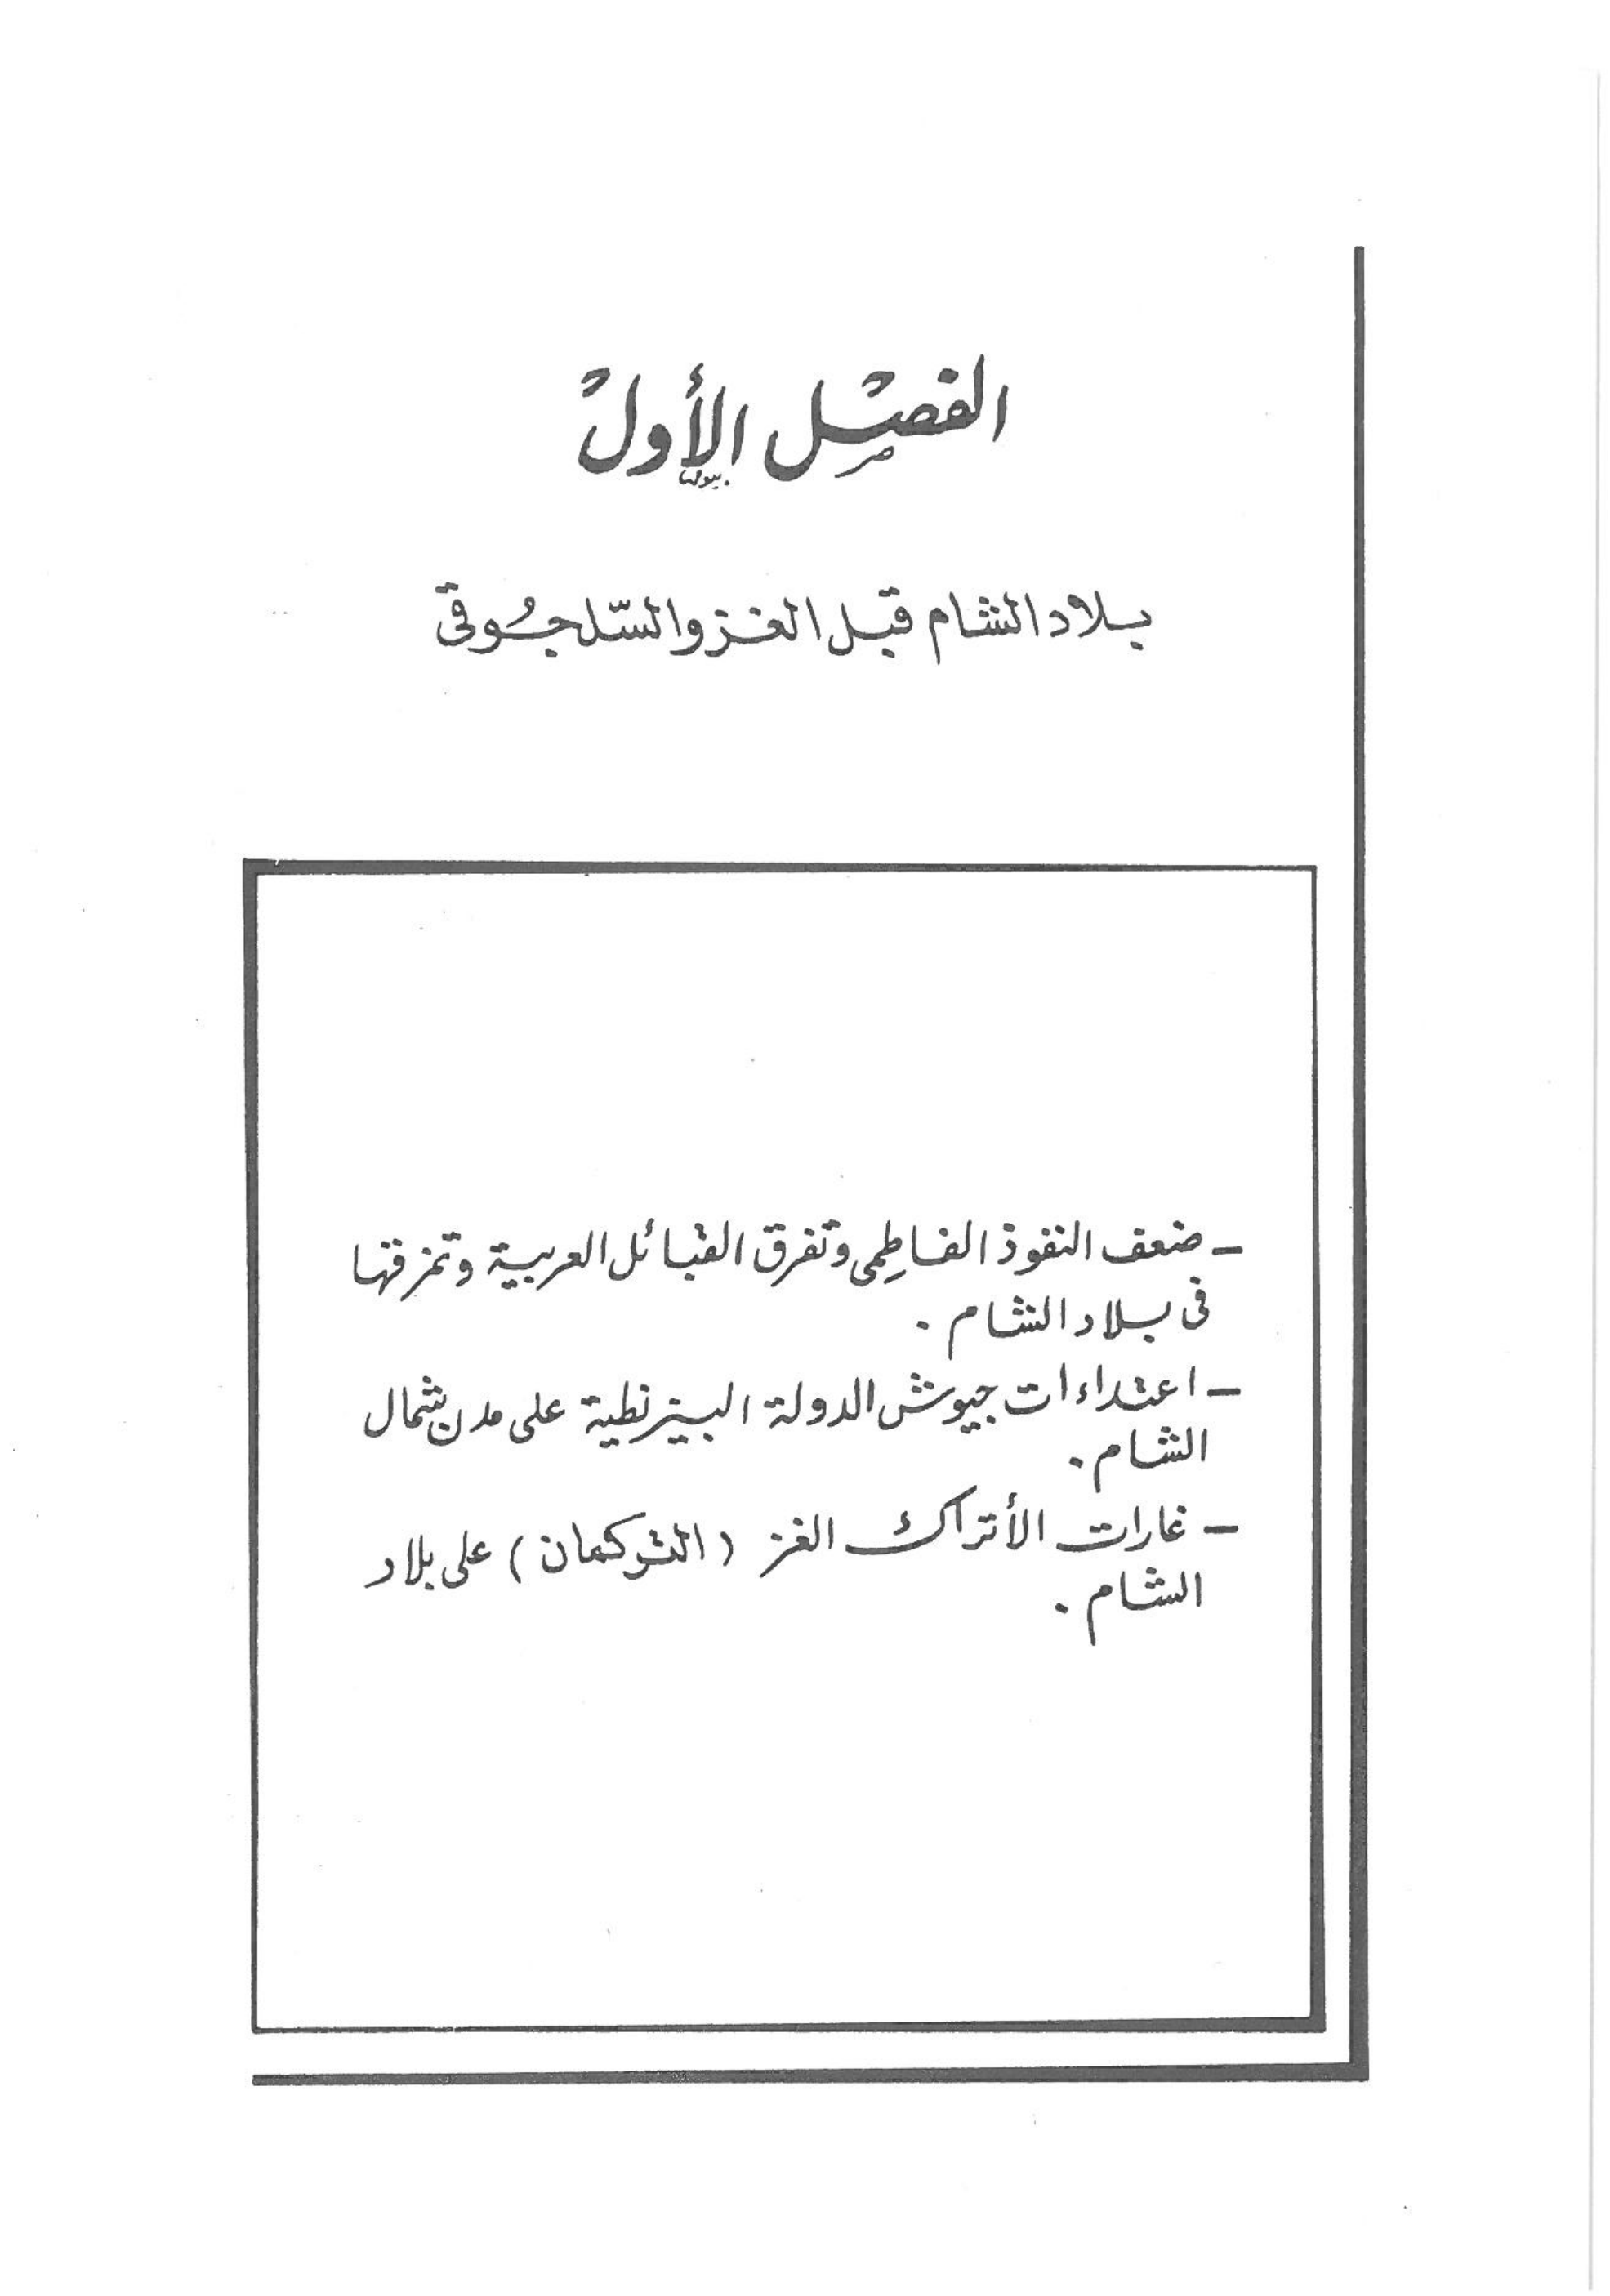 الفصل الأول
بلاد الشام قبل الغزو السّلجُوقى
- ضعف النفوذ الفاطِمى وتفرق القبائل العربية وتمزقها
فى بلاد الشام .
- اعتداءات جيوش الدولة البيزنطية على مدن شمال
الشام .
- غارات الأتراك الغز (التركمان) على بلاد
الشام .